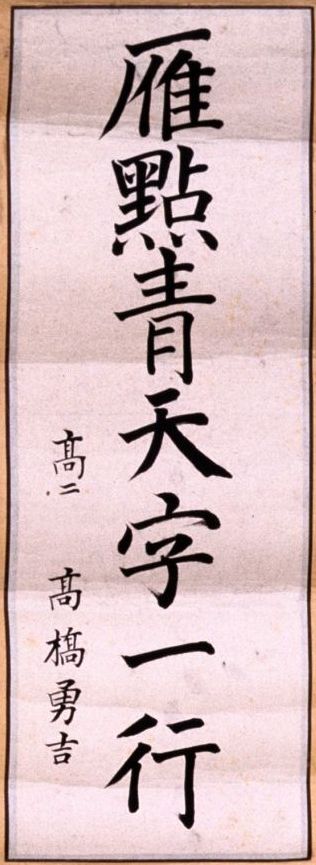 雁點青天字一行
髙二 髙橋勇吉